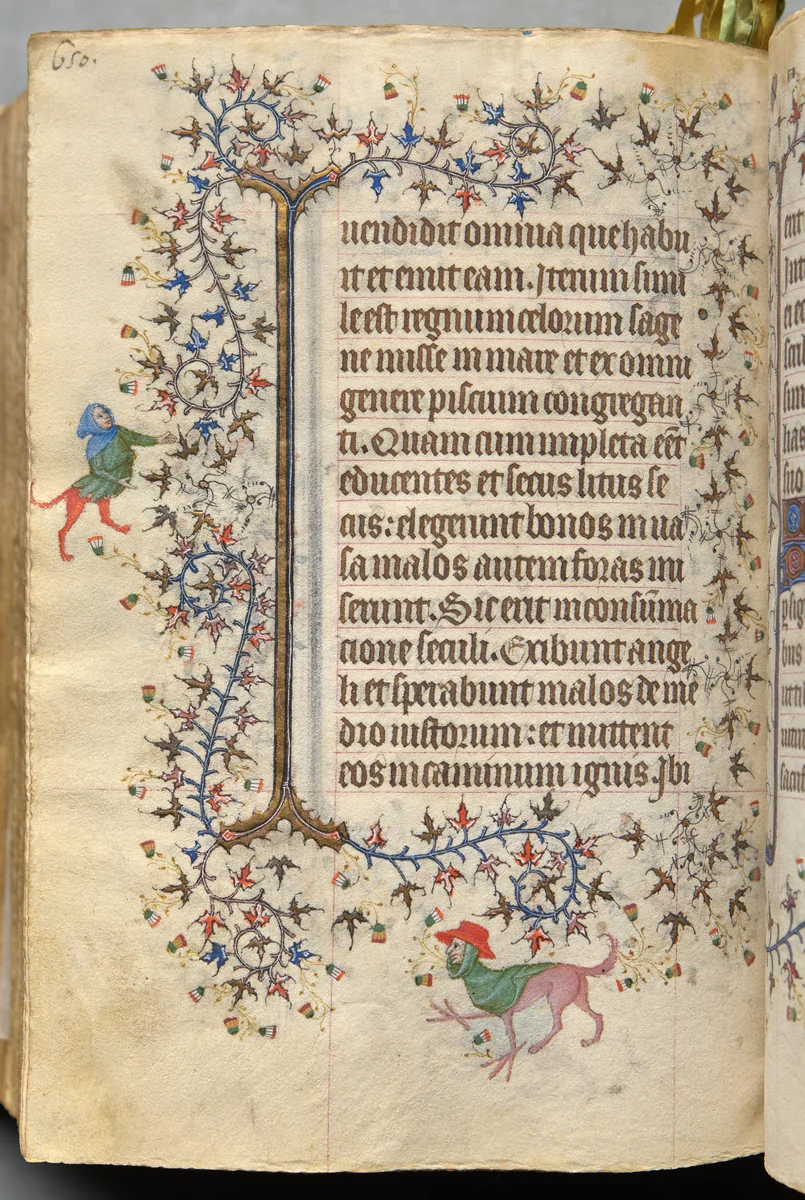 650.
uendidit omnia que habu
it et emit eam. Iterum simi
le est regnum celorum sage
ne misse in mare et ex omni
genere piscium congregan
ti. Quam cum impleta eēt
educentes et secus litus se
cus: elegerunt bonos in ua
sa malos autem foras mi
serunt. Sic erit in consūma
cione seculi. Exibunt ange
li et sperabunt malos de me
dio iustorum: et mittent
eos in caminum ignis. Ibi